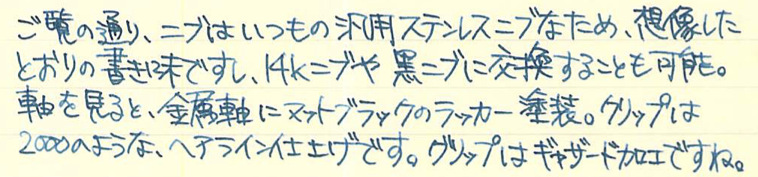 ご覧の通り、ニブはいつもの汎用ステンレスニブなため、想像した
とおりの書き味ですし、14kニブや黒ニブに交換することも可能。
軸を見ると、金属軸にマットブラックのラッカー塗装。クリップは
2000のような、ヘアライン仕上げです。グリップはギャザード加工ですね。